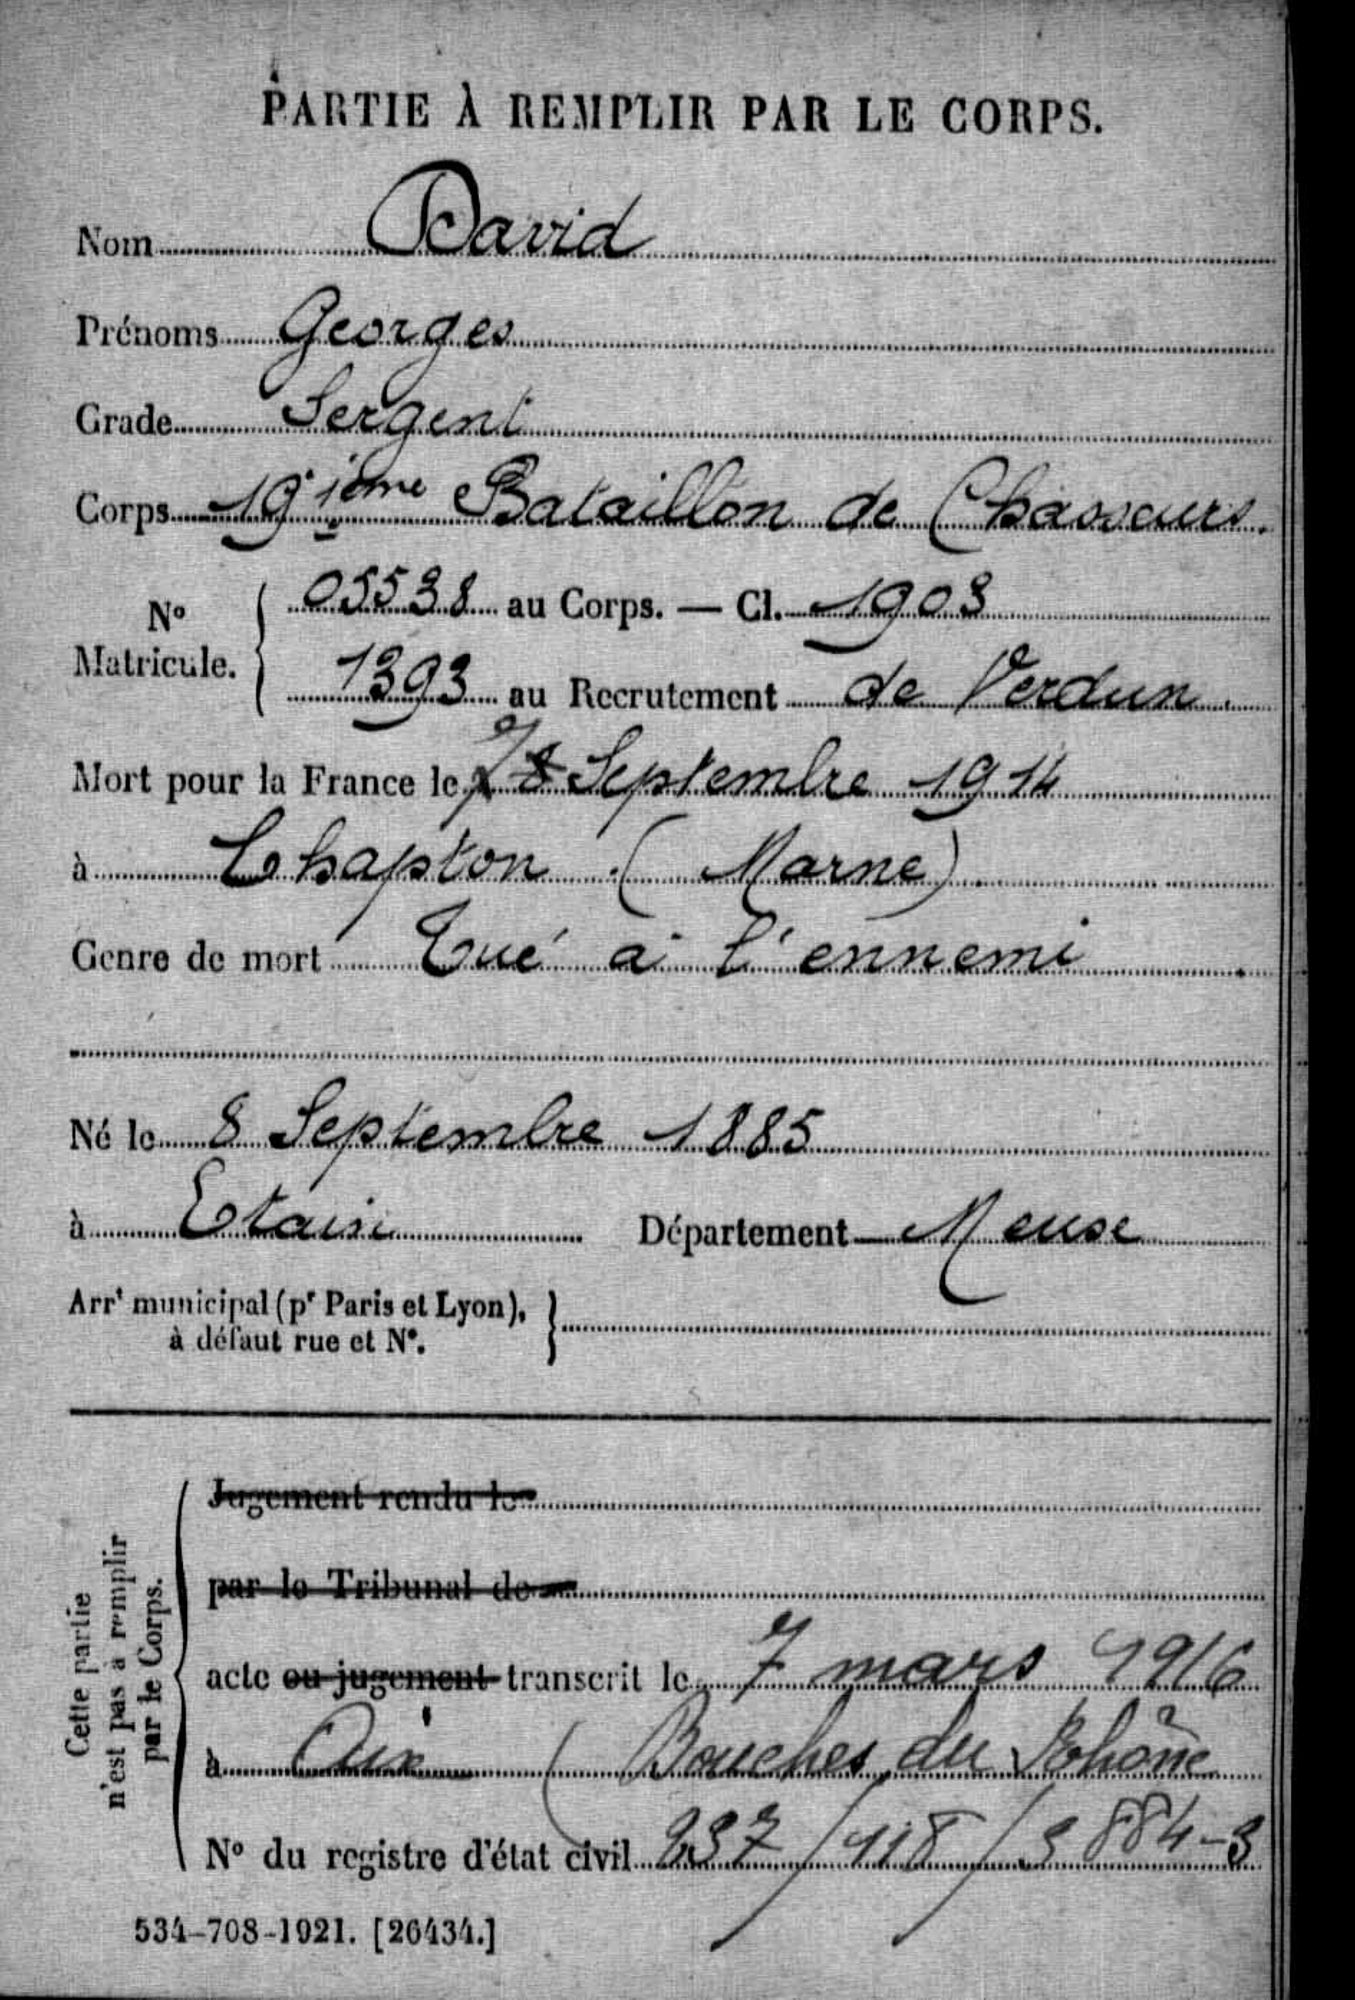 PARTIE À REMPLIR PAR LE CORPS.
Nom David
Prénoms Georges
Grade Sergent
Corps 19ième Bataillon de Chasseurs.
N° Matricule. { 05538 au Corps. — Cl. 1903
1393 au Recrutement de Verdun.
Mort pour la France le 7 Septembre 1914
à Chapton (Marne)
Genre de mort Tué à l'ennemi
Né le 8 Septembre 1885
à Etain Département Meuse
Arrt municipal (pr Paris et Lyon), à défaut rue et N°. }
Cette partie n'est pas à remplir par le Corps.
Jugement rendu le
par le Tribunal de
acte ou jugement transcrit le 7 mars 1916
à Aix (Bouches du Rhône
N° du registre d'état civil 237/118/3884-3
534-708-1921. [26434.]